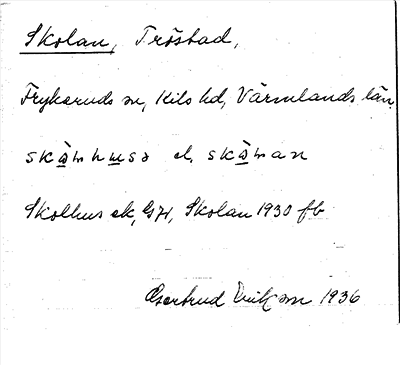 Skolan, Tröstad,
Frykeruds sn, Kils hd, Värmlands län.
el.
Skolhus ek, G71, Skolan 1930 fb
Gertrud Eriksson 1936